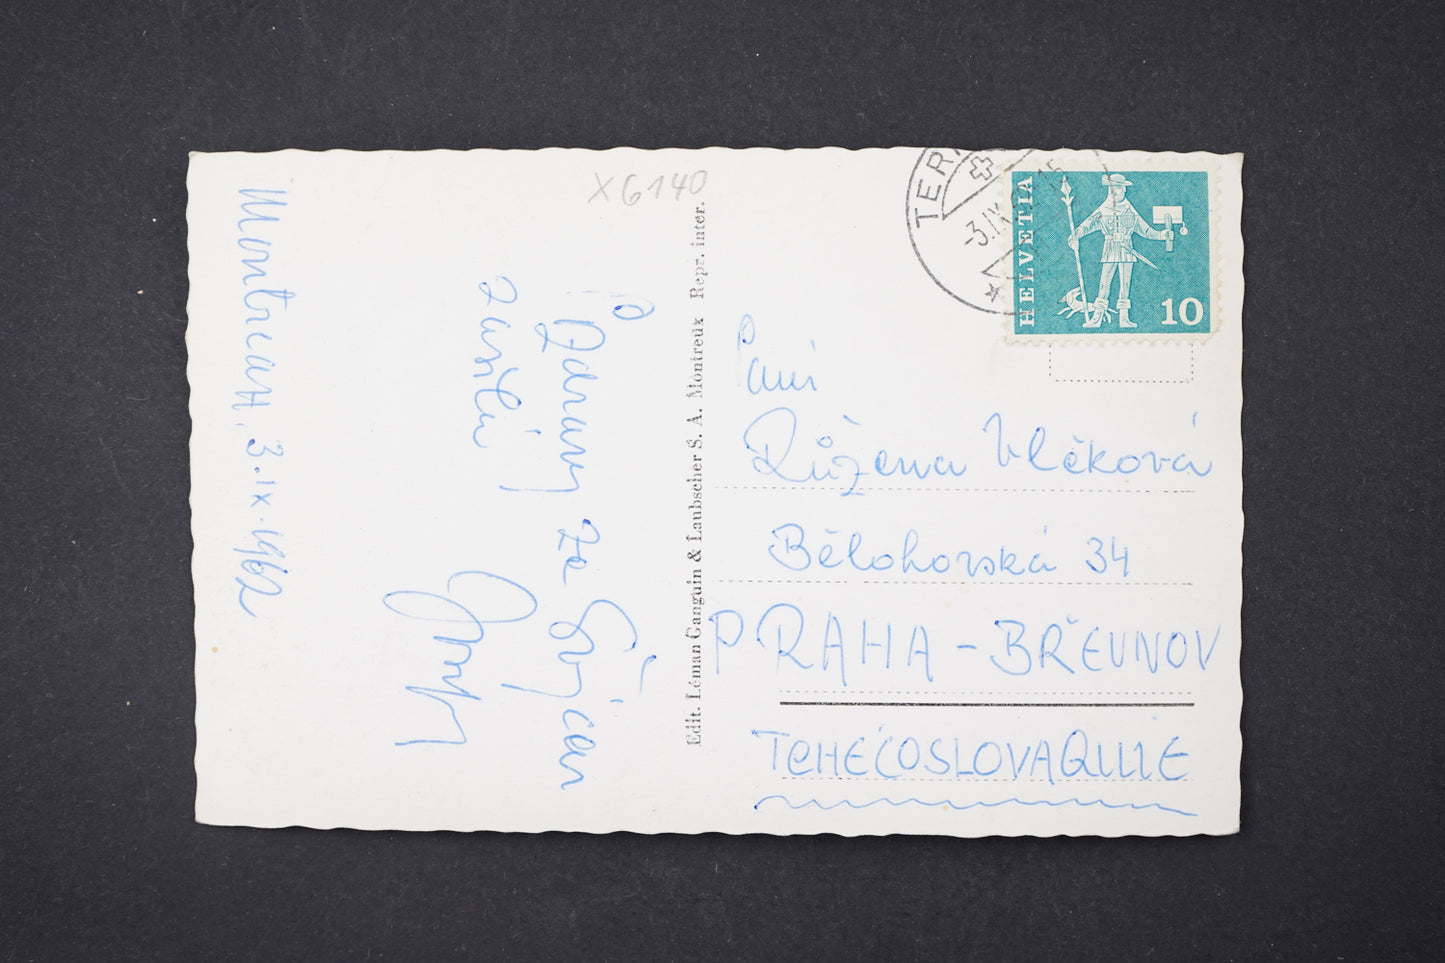 Montreaux, 3.IX.1962
Pozdravy ze Švýcar
zasílá
X 6140
Edit. Léman Ganguin & Laubscher S. A. Montreux Repr. inter.
TER
-3.IX
15
HELVETIA
10
Paní
Růžena Vlčková
Bělohorská 34
PRAHA - BŘEVNOV
TCHÉCOSLOVAQUIE